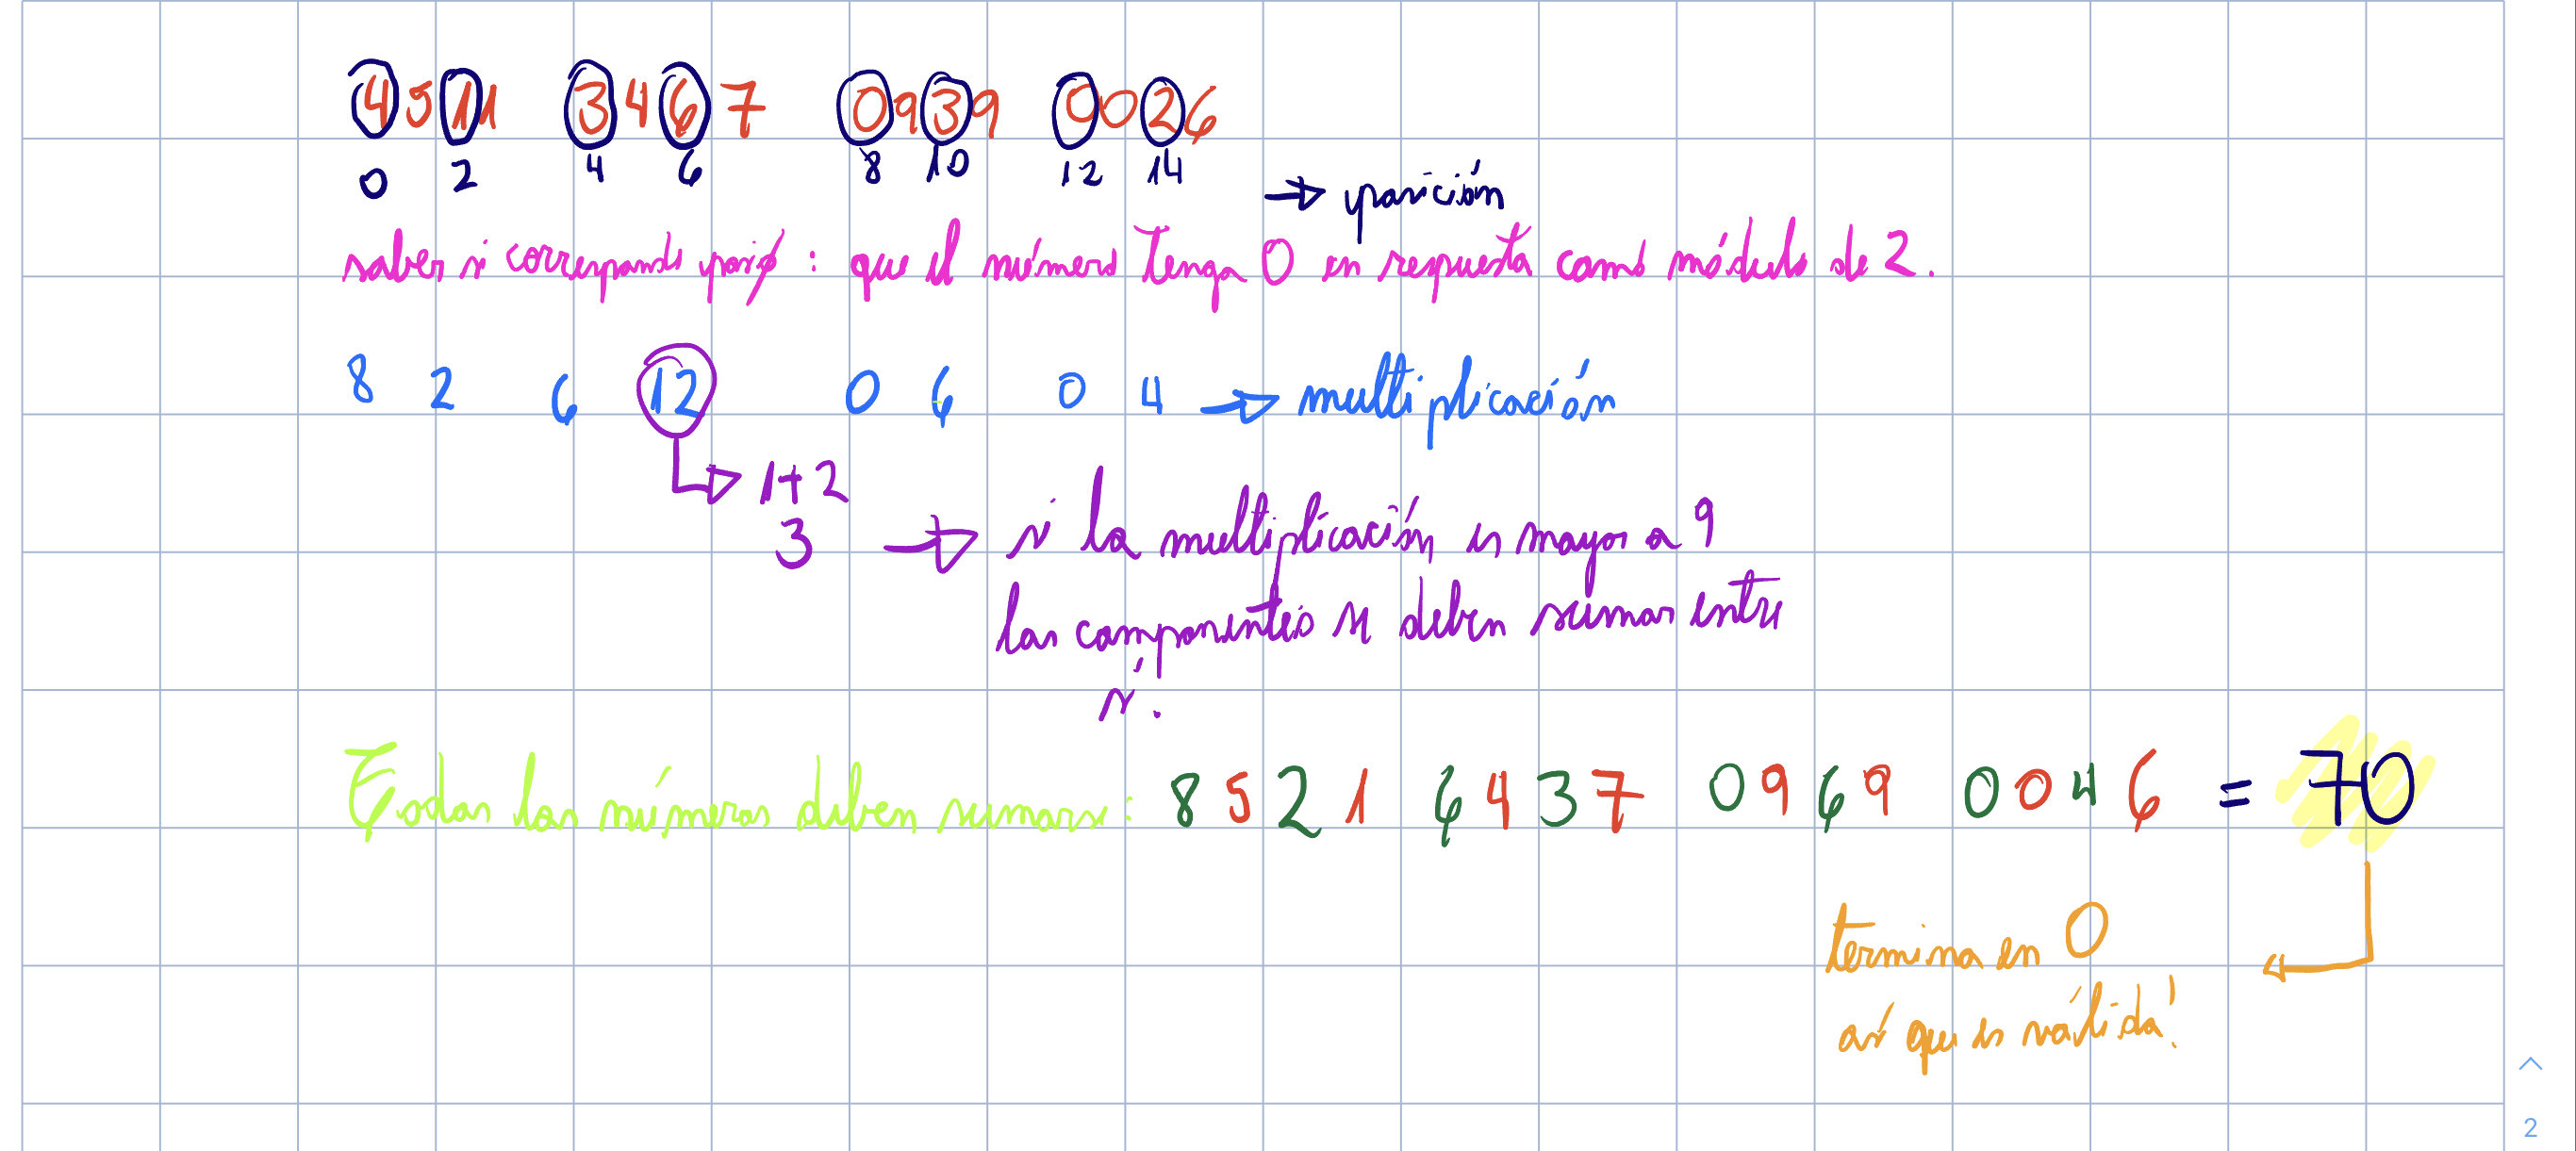 4511 3467 0939 0026
0 2 4 6 8 10 12 14 → posición
saber si corresponde posi⁰: que el número tenga 0 en respuesta como módulo de 2.
8 2 6 12 0 6 0 4 → multiplicación
1+2
3 → si la multiplicación es mayor a 9
los componentes se deben sumar entre
sí.
Todos los números deben sumar: 8521 6437 0969 0046 = 70
termina en 0
así que es válida!
2